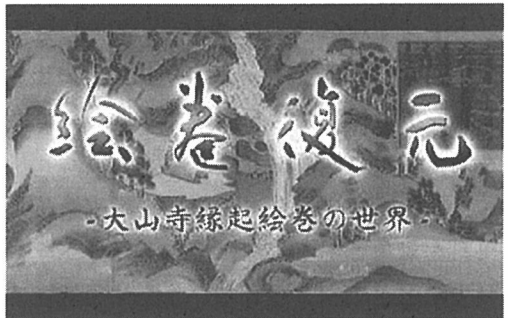 絵巻復元
-大山寺縁起絵巻の世界-